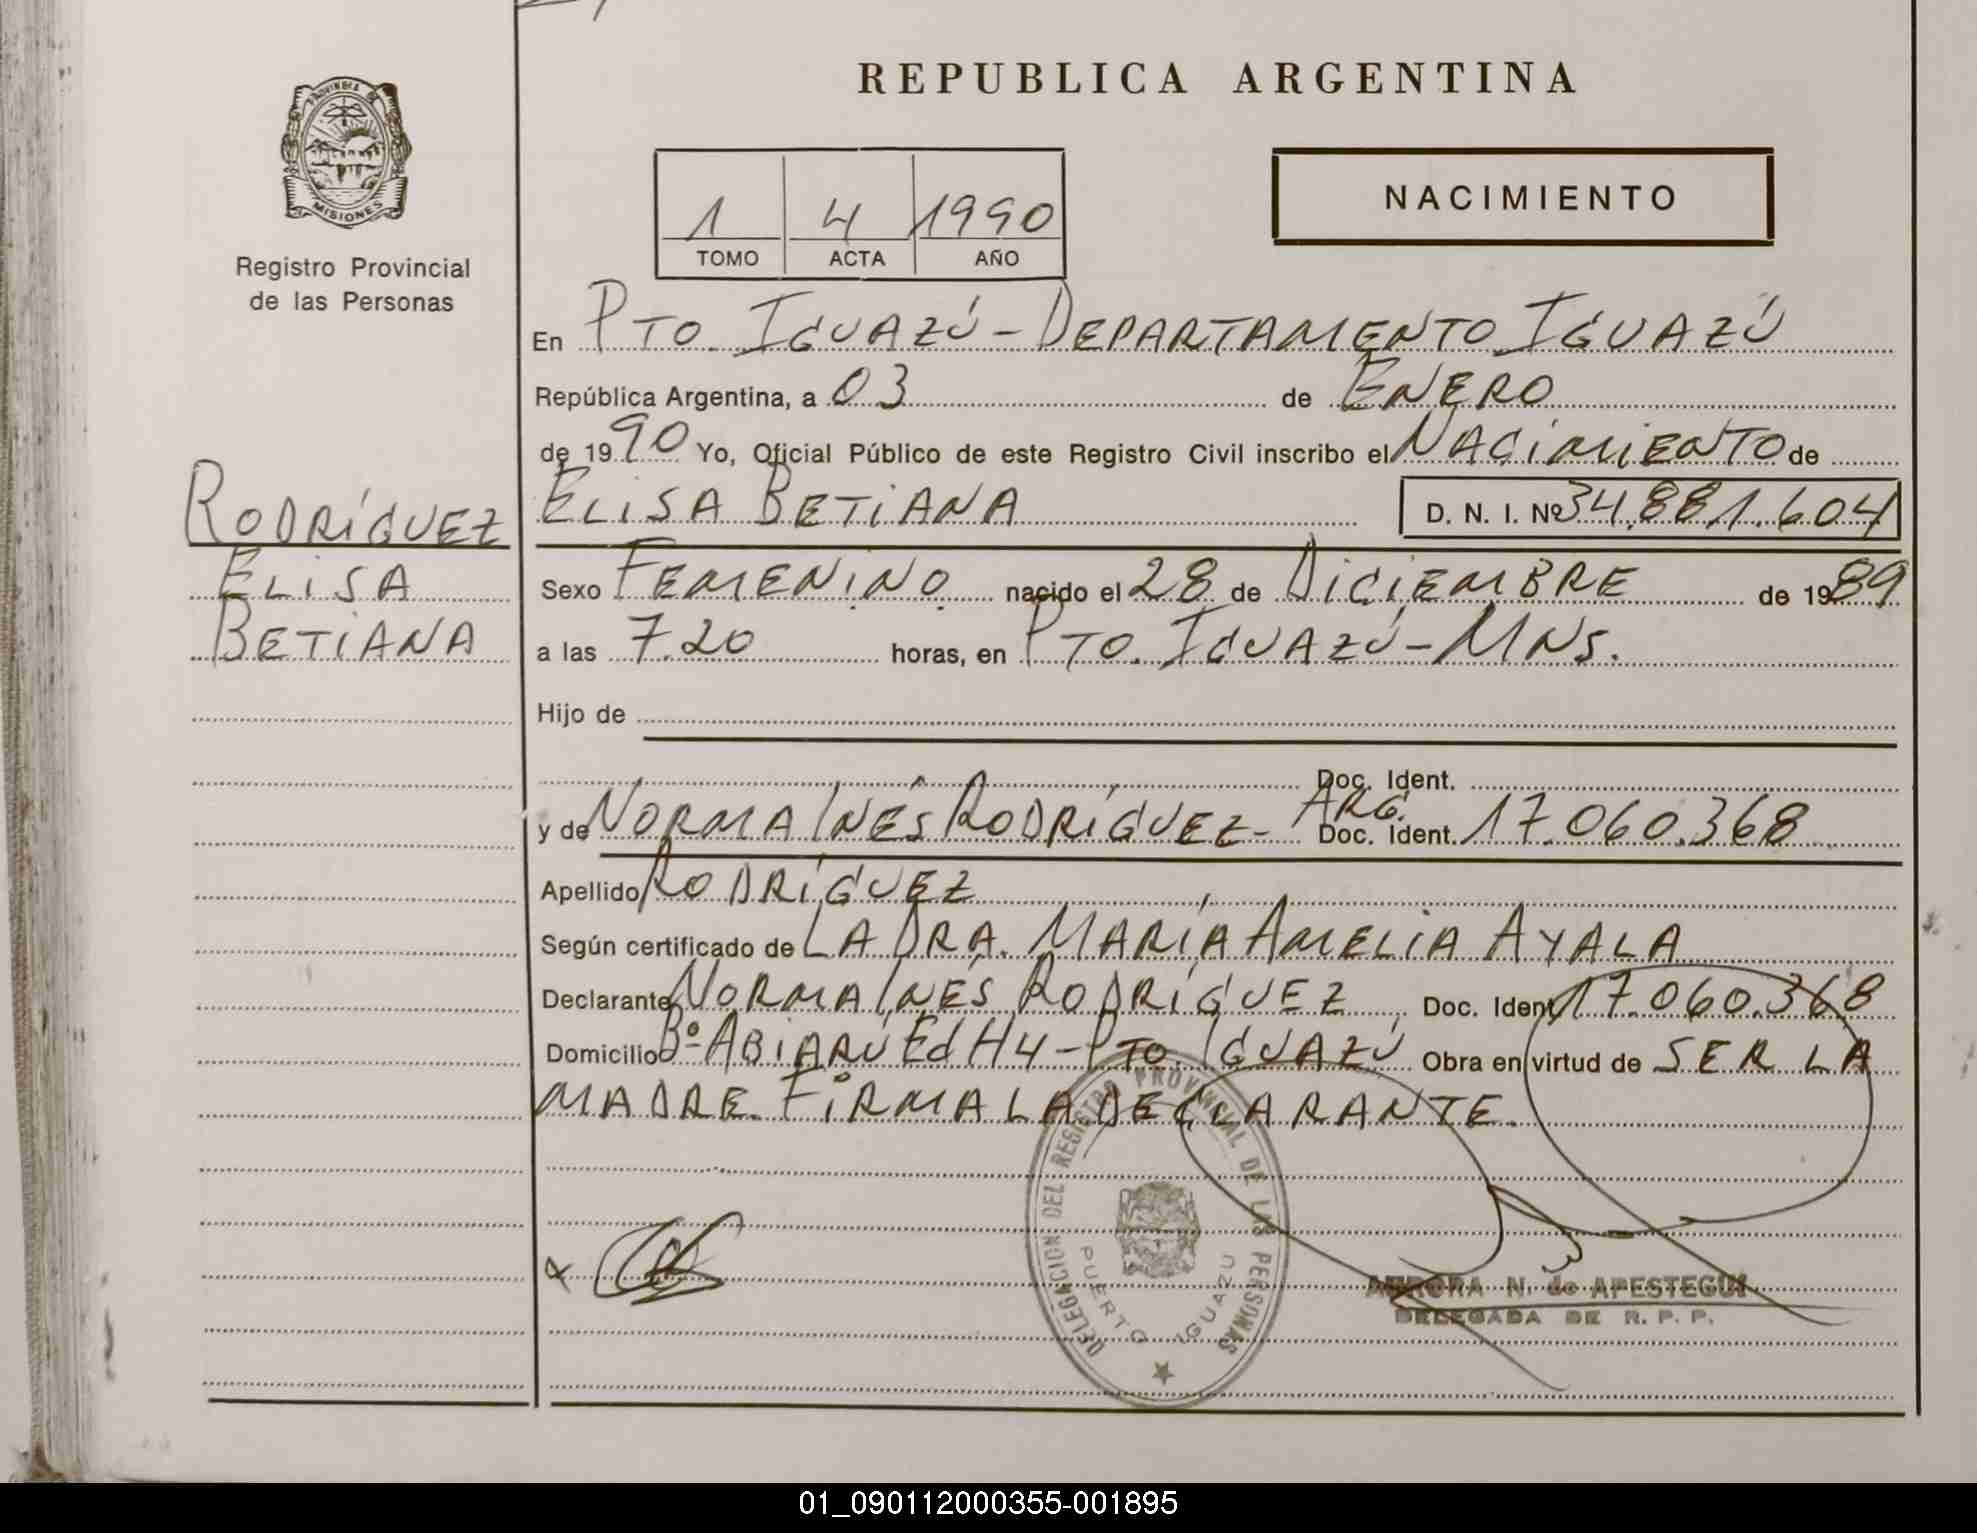 REPUBLICA ARGENTINA
PROVINCIA DE
MISIONES
Registro Provincial
de las Personas
1 4 1990
TOMO ACTA AÑO
NACIMIENTO
En PTO. IGUAZÚ - DEPARTAMENTO IGUAZÚ
República Argentina, a 03 de ENERO
de 1990 Yo, Oficial Público de este Registro Civil inscribo el NACIMIENTO de
RODRÍGUEZ
ELISA
BETIANA
ELISA BETIANA D. N. I. Nº 34.881.604
Sexo FEMENINO nacido el 28 de DICIEMBRE de 1989
a las 7.20 horas, en PTO. IGUAZÚ - MNS.
Hijo de
Doc. Ident.
y de NORMA INÉS RODRÍGUEZ - ARG. Doc. Ident. 17.060.368
Apellido RODRÍGUEZ
Según certificado de LA DRA. MARÍA AMELIA AYALA
Declarante NORMA INÉS RODRÍGUEZ Doc. Ident. 17.060.368
Domicilio Bº ABIARÚ Ed H4 - PTO. IGUAZÚ Obra en virtud de SER LA
MADRE. FIRMA LA DECLARANTE.
DELEGACION DEL REGISTRO PROVINCIAL DE LAS PERSONAS
PUERTO IGUAZU
AURORA N. de APESTEGUI
DELEGADA DE R. P. P.
01_090112000355-001895